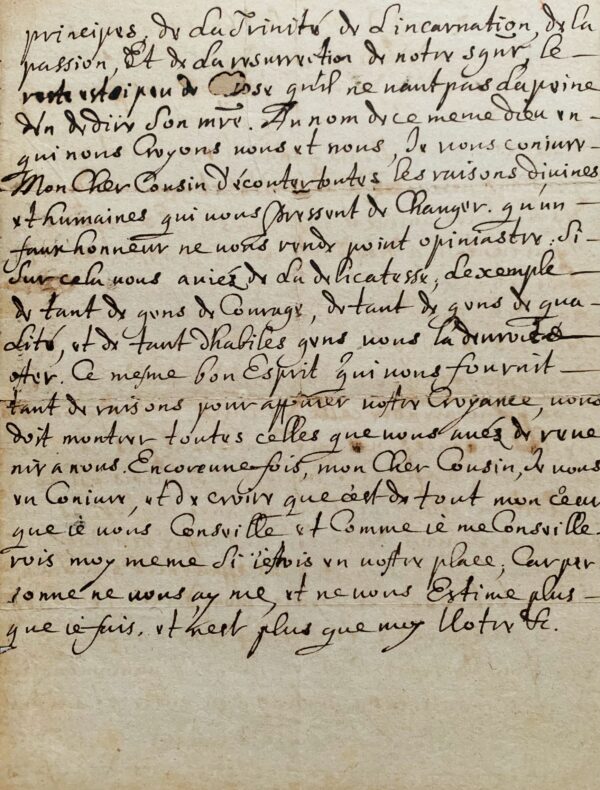 principes, de La Trinité de L'incarnation, de la
passion, Et de La resurrection de notre sgnr, le
reste est si peu de Chose qu'il ne vaut pas La peine
d'en dedire Son mre. Au nom de ce meme dieu en
qui nous Croyons vous et nous, Je vous conjure
Mon Cher Cousin d'écouter toutes les raisons divines
et humaines qui vous pressent de Changer. qu'un
faux honneur ne vous rende point opiniastre, Si
Sur cela vous aviés de La delicatesse, L'exemple
de tant de gens de Courage, de tant de gens de qua
Lité, et de tant d'habiles gens vous la devroit
oster. Ce mesme bon Esprit qui vous fournit
tant de raisons pour appuier vostre Croyance, vous
doit montrer toutes celles que vous avés de reve
nir a nous. Encore une fois, mon Cher Cousin, Je vous
en Conjure, et de croire que c'est de tout mon cœur
que ie vous Conseille et Comme ie me Conseille
rois moy meme Si i'estois en vostre place, Car per
sonne ne vous ayme, et ne vous Estime plus
que ie fais. et n'est plus que moy Votre &c.